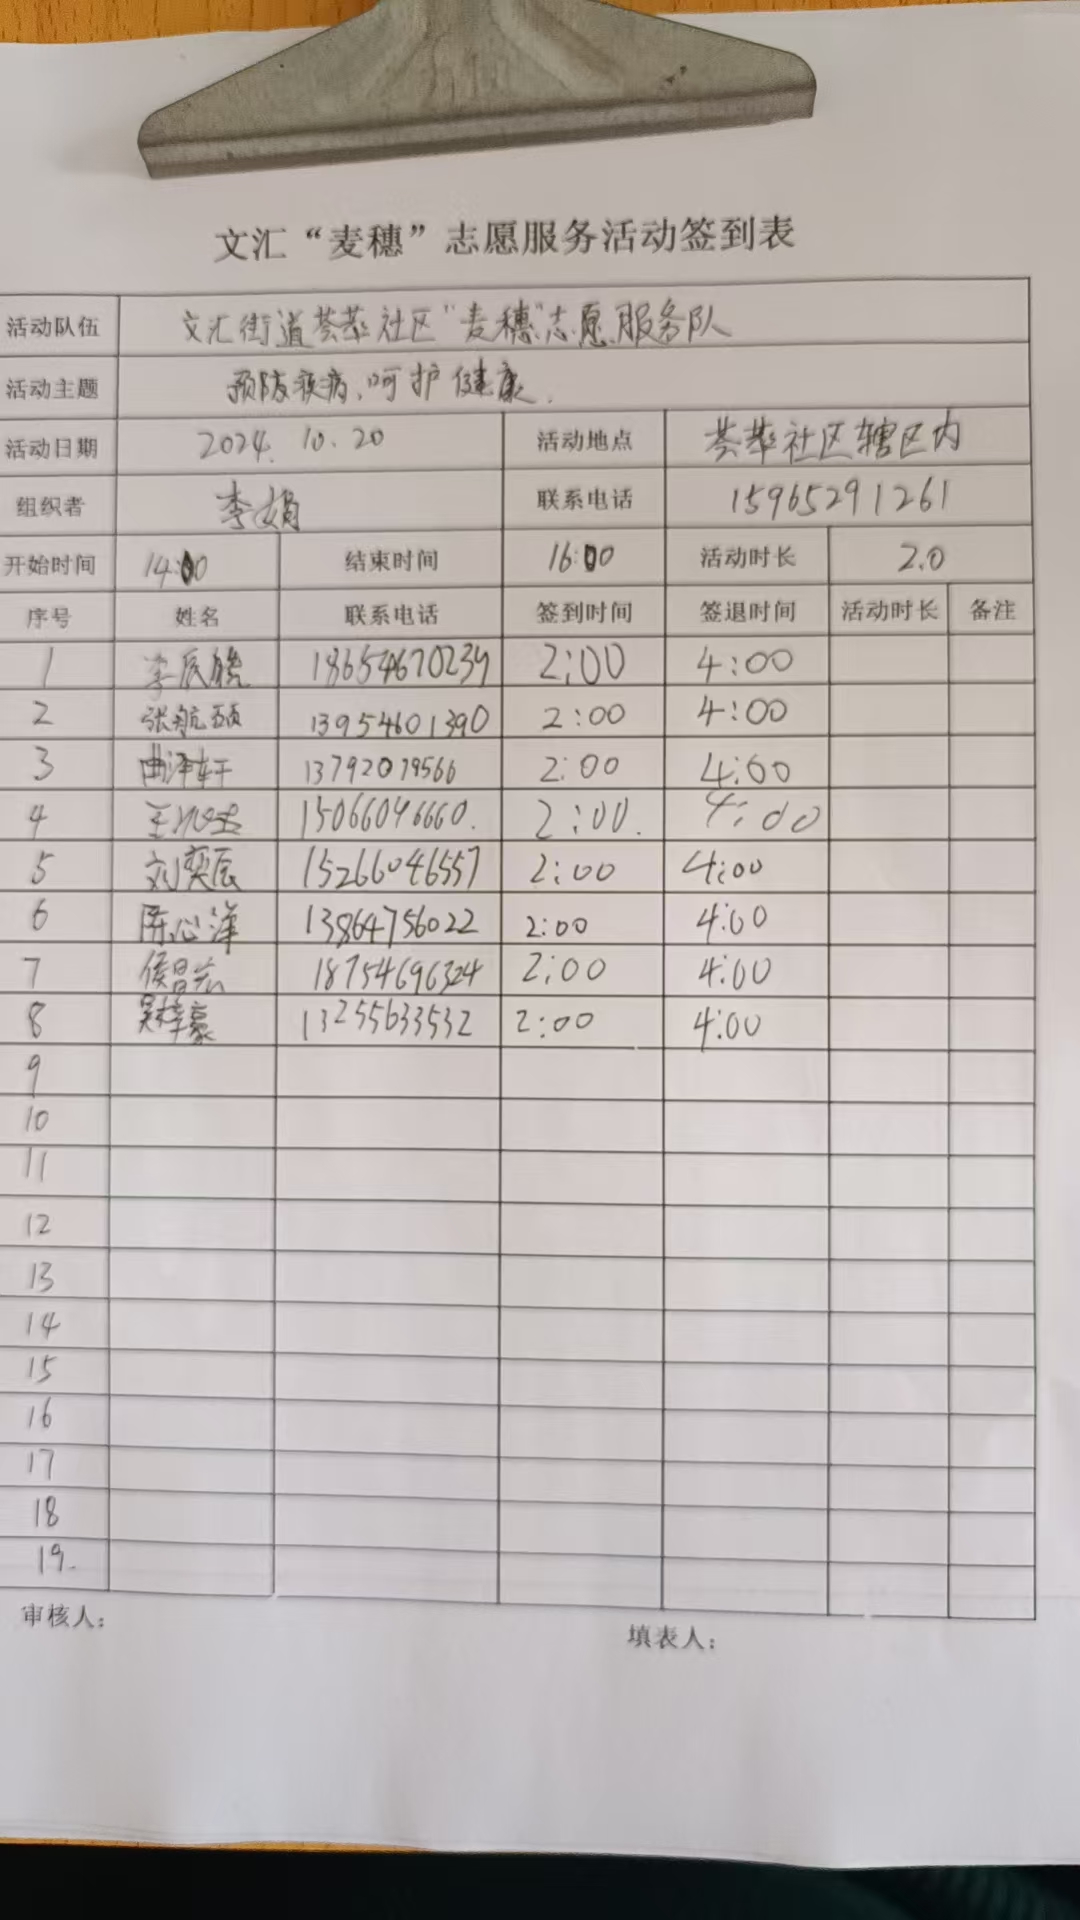 文汇“麦穗”志愿服务活动签到表
活动队伍 文汇街道荟萃社区“麦穗”志愿服务队
活动主题 预防疾病、呵护健康.
活动日期 2024. 10. 20 活动地点 荟萃社区辖区内
组织者 李娟 联系电话 15965291261
开始时间 14:00 结束时间 16:00 活动时长 2.0
序号 姓名 联系电话 签到时间 签退时间 活动时长 备注
1 李辰皓 18654670234 2:00 4:00
2 张航硕 13954601390 2:00 4:00
3 曲泽轩 13792079566 2:00 4:00
4 15066046660. 2:00. 4:00
5 刘奕辰 15266046557 2:00 4:00
6 陈心洋 13864756022 2:00 4:00
7 侯昌宏 18754696324 2:00 4:00
8 吴梓豪 13255633532 2:00 4:00
9
10
11
12
13
14
15
16
17
18
19.
审核人： 填表人：